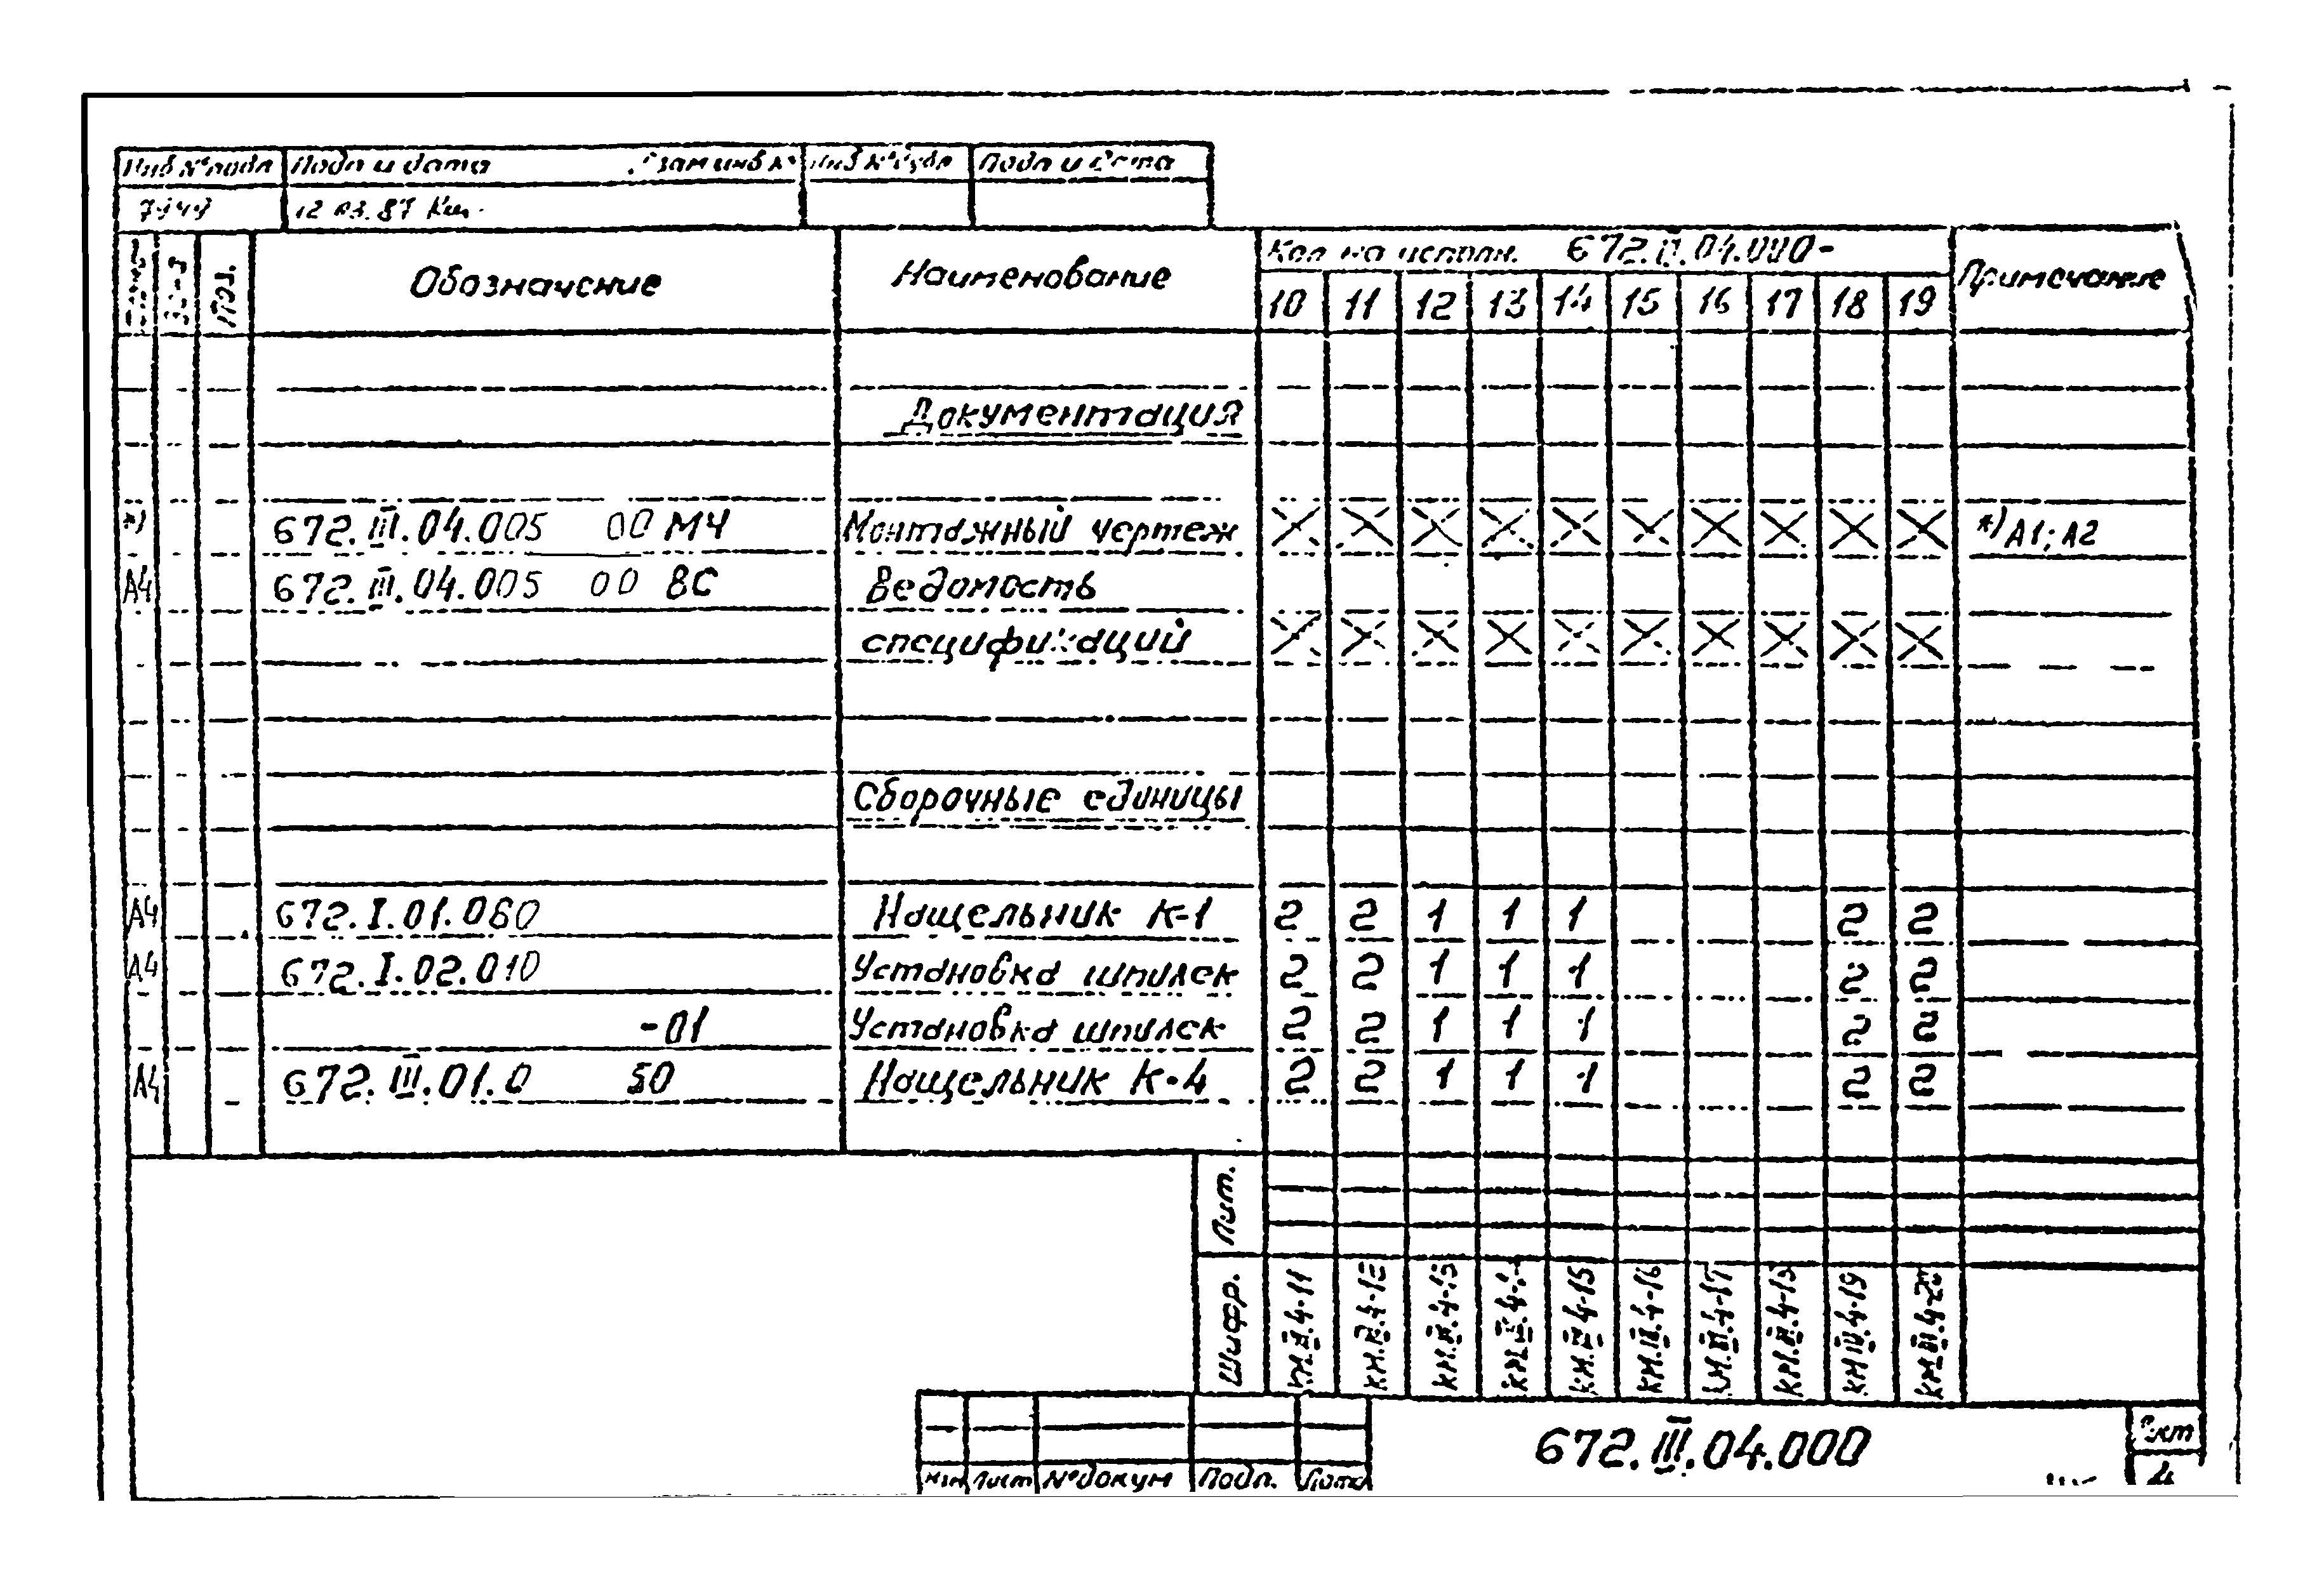 Инв № подл Подп и дата Взам инв № Инв № дубл Подп и дата
7944 12 03.87
Поз. Обозначение Наименование Кол на исполн. 672.III.04.000- Примечание
10 11 12 13 14 15 16 17 18 19
Документация
*) 672.III.04.005 00 МЧ Монтажный чертеж *) А1; А2
А4 672.III.04.005 00 ВС Ведомость
спецификаций
Сборочные единицы
А4 672.I.01.060 Нащельник К-1 2 2 1 1 1 2 2
А4 672.I.02.010 Установка шпилек 2 2 1 1 1 2 2
-01 Установка шпилек 2 2 1 1 1 2 2
А4 672.III.01.0 50 Нащельник К-4 2 2 1 1 1 2 2
Лит.
Шифр. КМ.III.4-11 КМ.III.4-12 КМ.III.4-13 КМ.III.4-15 КМ.III.4-16 КМ.III.4-17 КМ.III.4-18 КМ.III.4-19 КМ.III.4-20
672.III.04.000 Лист
Изм Лист № докум Подп. Дата 4